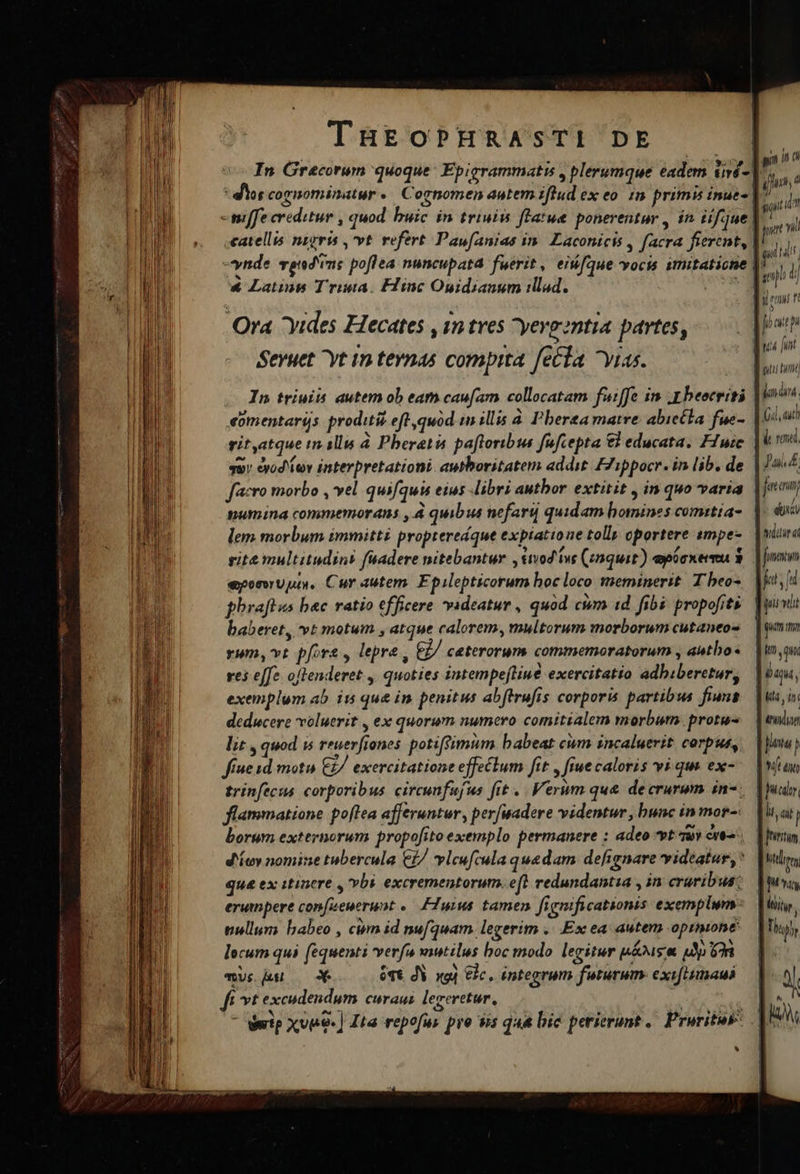 THEOPHRASTI DE
In Græcorum quoque Epigrammatis, plerumque eadem εἰνό-
διος cognominatur. Cognomen autem istud ex eo in primis inue-
nisse creditur, quod huic in triuiis statuæ ponerentur, in iisque
catellis nigris, vt refert Pausanias in Laconicis, sacra fierent,
vnde τριοδῖτις postea nuncupata fuerit, eiúsque vocis imitatione
à Latinis Triuia. Hinc Ouidianum illud.
Ora vides Hecates, in tres vergentia partes,
Seruet vt in ternas compita secta vias.
In triuiis autem ob eam causam collocatam fuisse in Theocriti
cōmentarijs proditū est, quòd in illis à Pheræa matre abiecta fue-
rit, atque in illis à Pheretis pastoribus suscepta & educata. Huic
τῶν ἐνοδίων interpretationi authoritatem addit Hippocr. in lib. de
sacro morbo, vel quisquis eius libri author extitit, in quo varia
numina commemorans, à quibus nefarij quidam homines comitia-
lem morbum immitti proptereáque expiatione tolli oportere impe-
ritæ multitudini suadere nitebantur, εἰνοδίης (inquit) πρόσκειται ἡ
προσωνυμίη. Cur autem Epilepticorum hoc loco meminerit Theo-
phrastus hæc ratio efficere videatur, quòd cùm id sibi propositi
haberet, vt motum, atque calorem, multorum morborum cutaneo-
rum, vt psoræ, lepræ, & cæterorum commemoratorum, autho-
res esse ostenderet, quoties intempestiuè exercitatio adhiberetur,
exemplum ab iis quæ in penitus abstrusis corporis partibus fiunt
deducere voluerit, ex quorum numero comitialem morbum protu-
lit, quòd is reuersiones potissimùm habeat cùm incaluerit corpus,
siue id motu & exercitatione effectum sit, siue caloris vi qui ex-
trinsecus corporibus circunfusus sit. Verùm quæ de crurum in-
flammatione postea afferuntur, persuadere videntur, hunc in mor-
borum externorum proposito exemplo permanere: adeo vt τῶν ἐνο-
δίων nomine tubercula & vlcuscula quædam designare videatur,
quæ ex itinere, vbi excrementorum est redundantia, in cruribus
erumpere consueuerunt. Huius tamen significationis exemplum
nullum habeo, cùm id nusquam legerim. Ex ea autem opinione
locum qui sequenti versu mutilus hoc modo legitur μάλιςα μὲν ὅτι
* ὅτε δὴ καὶ &c. integrum futurum existimaui
si vt excudendum curaui legeretur.
Ita reposui pro iis quæ hic perierunt. Pruritus